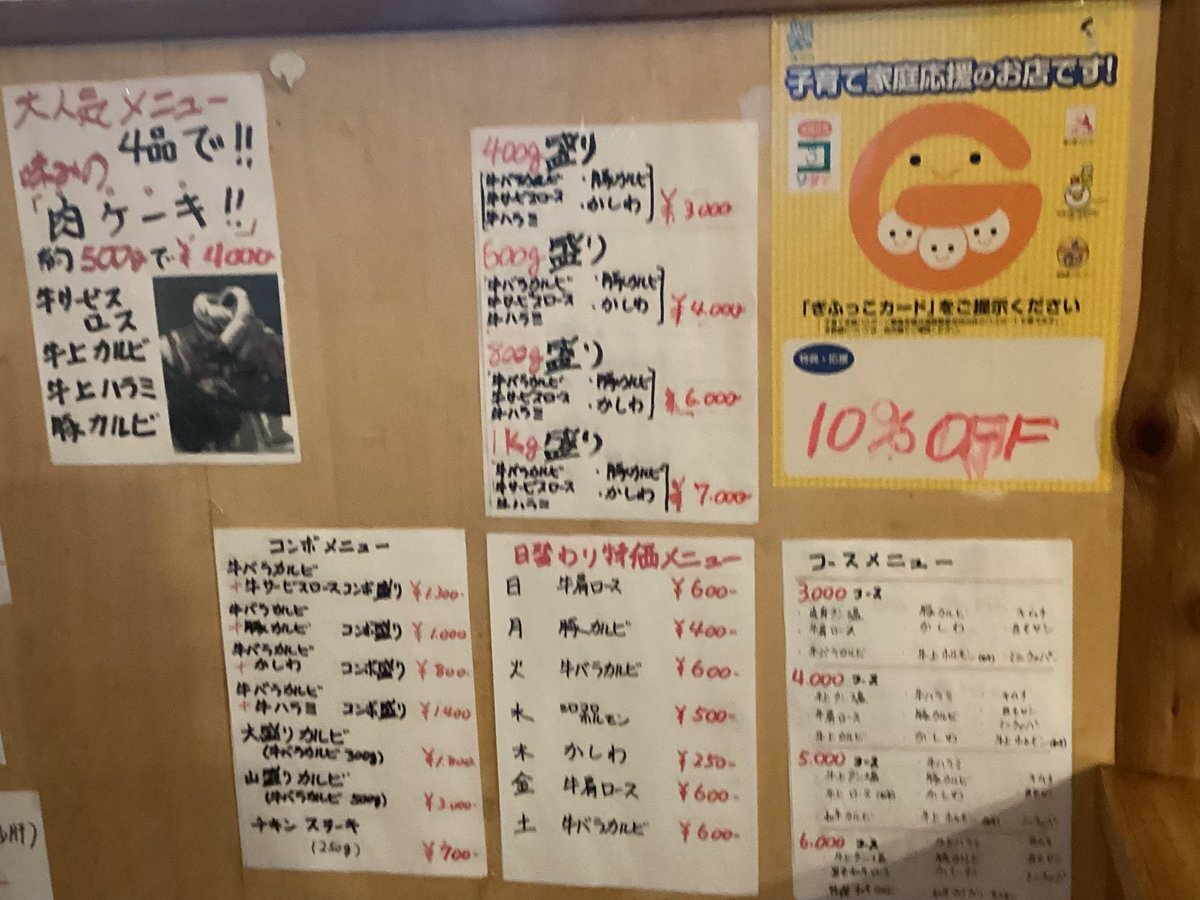 大人気メニュー
4品で!!
味みの
「肉ケーキ!!」
約500gで¥4000-
牛サービス
ロース
牛上カルビ
牛上ハラミ
豚カルビ
400g盛り
牛バラカルビ ・豚カルビ
牛サービスロース ・かしわ ¥3000
牛ハラミ
600g盛り
牛バラカルビ ・豚カルビ
牛サービスロース ・かしわ ¥4.000
牛ハラミ
800g盛り
牛バラカルビ ・豚カルビ
牛サービスロース ・かしわ ¥6.000
牛ハラミ
1Kg盛り
牛バラカルビ ・豚カルビ
牛サービスロース ・かしわ ¥7.000-
牛ハラミ
子育て家庭応援のお店です!
「ぎふっこカード」をご提示ください
特典・応援
10%OFF
コンボメニュー
牛バラカルビ
+牛サービスロースコンボ盛り ¥1.300-
牛バラカルビ
+豚カルビ コンボ盛り ¥1.000
牛バラカルビ
+かしわ コンボ盛り ¥800-
牛バラカルビ
+牛ハラミ コンボ盛り ¥1.400
大盛りカルビ
(牛バラカルビ 300g) ¥1.800
山盛りカルビ
(牛バラカルビ 500g) ¥3.000
チキンステーキ
(250g) ¥700-
日替わり特価メニュー
日 牛肩ロース ¥600-
月 豚カルビ ¥400-
火 牛バラカルビ ¥600-
水 コロコロホルモン ¥500-
木 かしわ ¥250-
金 牛肩ロース ¥600-
土 牛バラカルビ ¥600-
コースメニュー
3,000コース
豚カルビ キムチ
・牛肩ロース かしわ
・牛バラカルビ ・牛上ホルモン
4.000コース
・牛上タン塩 ・牛ハラミ ・キムチ
・牛肩ロース 豚カルビ
・牛上カルビ ・かしわ ・牛上ホルモン
5.000コース ・牛ハラミ
・牛上タン塩 豚カルビ キムチ
・牛上ロース ・かしわ
・牛上ホルモン
6.000コース